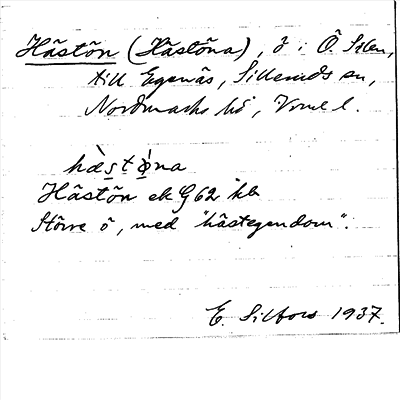 Hästön (Hästöna), ö i Ö. Silen,
till Egenäs, Silleruds sn,
Nordmarks hd, Vrml l.
hæ̀stø̀na
Hästön ek G62 kb
Större ö, med "hästegendom".
E. Silfors 1937.